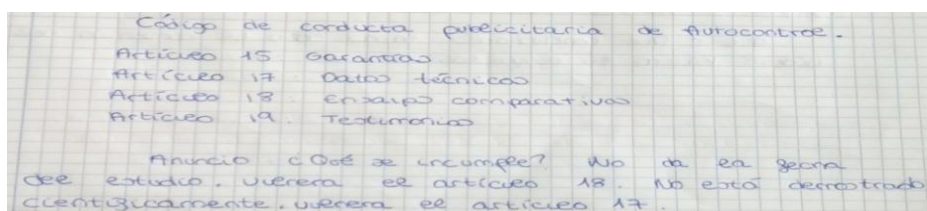 Código de conducta publicitaria de Autocontrol.
Artículo 15 Garantías
Artículo 17 Datos técnicos
Artículo 18 Ensayos comparativos
Artículo 19. Testimonios
Anuncio ¿Qué se incumple? No da la fecha
del estudio. Vulnera el artículo 18. No está demostrado
científicamente. Vulnera el artículo 17.